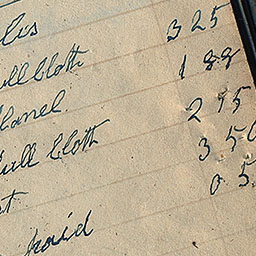 lis 3 25
ull Cloth 1 88
lanel 2 75
ull Cloth 3 50
t 0 5
paid